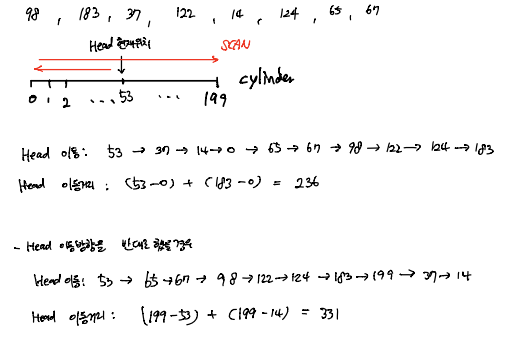 98 , 183 , 37 , 122 , 14 , 124 , 65 , 67
Head 현재위치
SCAN
0 1 2 ... 53 ... 199 cylinder
Head 이동: 53 → 37 → 14 → 0 → 65 → 67 → 98 → 122 → 124 → 183
Head 이동거리 : (53-0) + (183-0) = 236
- Head 이동방향을 반대로 했을 경우
Head 이동: 53 → 65 → 67 → 98 → 122 → 124 → 183 → 199 → 37 → 14
Head 이동거리 : (199-53) + (199-14) = 331